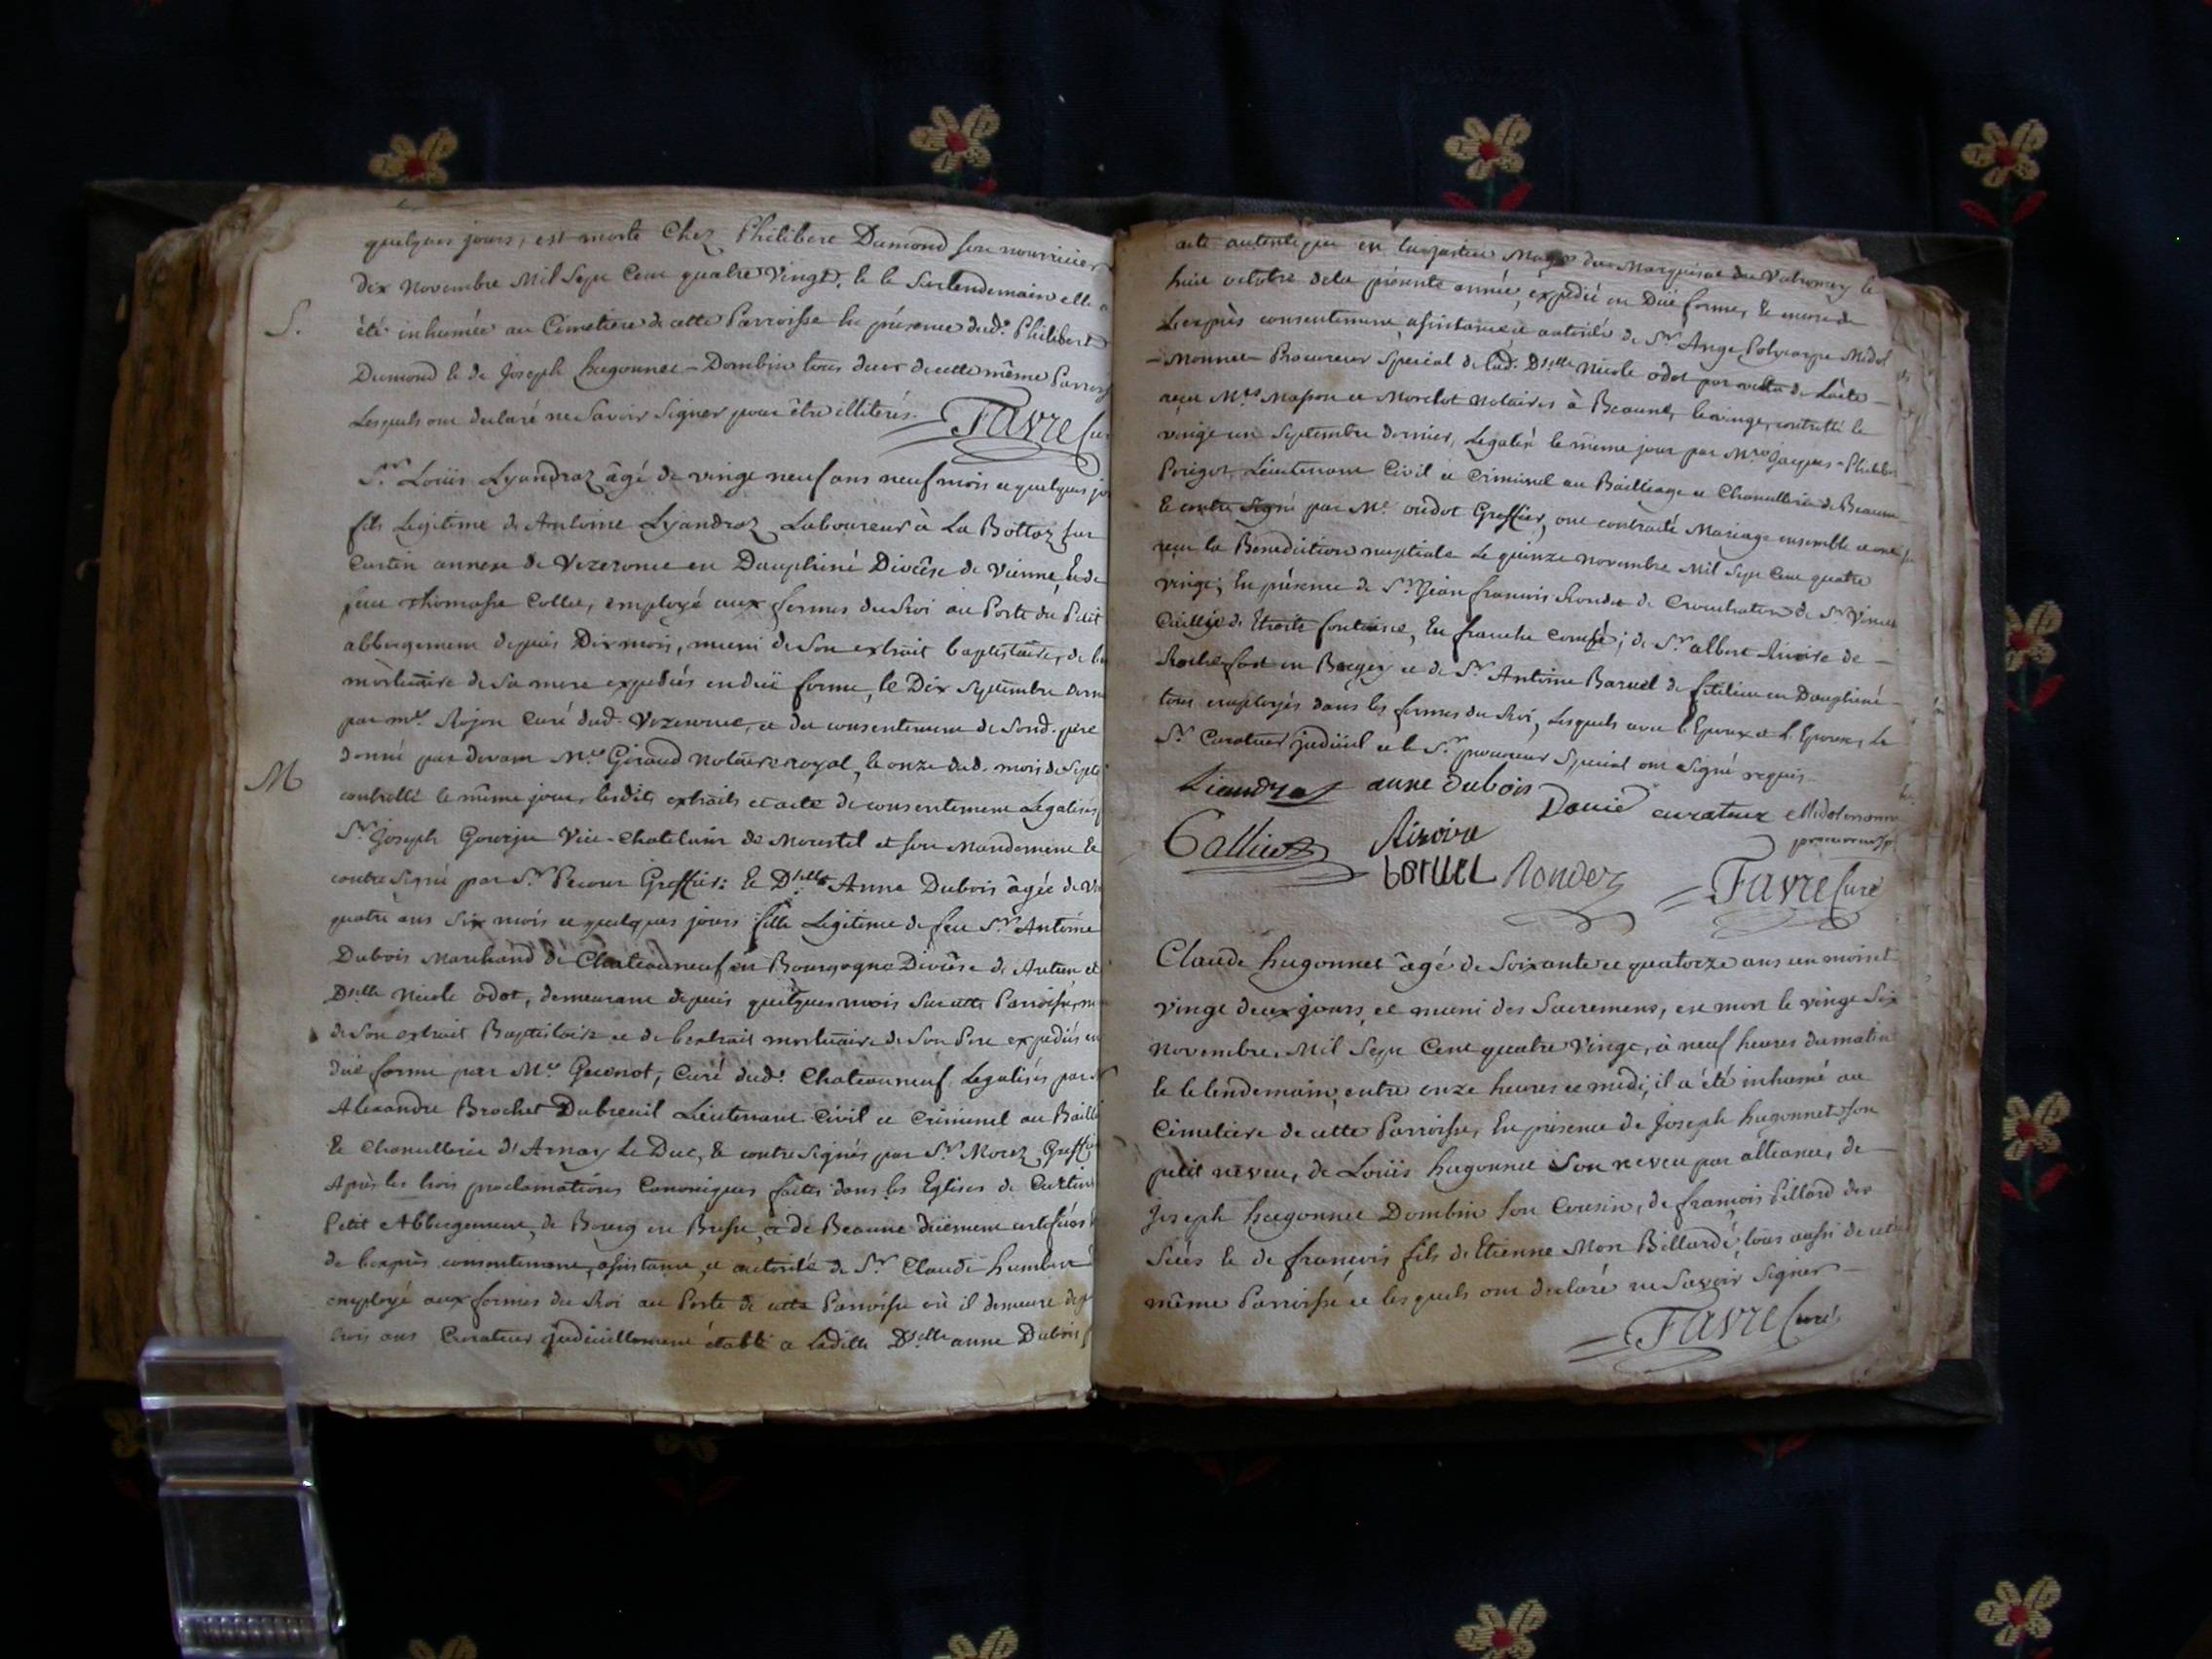 quelques jours, est morte Chez Philibert Dumond son nourricier
dix Novembre Mil Sept Cent quatre Vingt, & le Surlendemain elle a
S.
été inhumée au Cimetiere de cette Parroisse En présence dud.t Philibert
Dumond & de Joseph hugonnet-Dombin tous deux de cette même Parroiss
Lesquels ont declaré ne Savoir Signer pour être illiterés. Favre Cur
Sr. Loüis Lyandraz âgé de vingt neuf ans neuf mois et quelques jo
fils Legitime de Antoine Lyandraz Laboureur à La Bottaz sur
Curtin annexe de Vezeronce en Dauphiné Diocêse de Vienne, & de
feue Thomasse Collet, employé aux fermes du Roi au Poste du Petit
abbergement depuis Dix mois, muni de Son extrait baptistaire, de
mortuaire de Sa mere expediés en düe forme, le Dix Septembre dern
par mre Rojon Curé dud. Vezeronce, et du consentement de Sond. pere
donné par devant Me. Giraud Notaire royal, le onze dud. mois de Septe
M
controllé le même jour, lesdits extraits et acte de consentement Legalisés
Sr. Joseph Gourju Vice-Chatelain de Morestel et son Mandement &
contre Signé par Sr. Greffier: & Dselle Anne Dubois âgée de Vi
quatre ans Six mois et quelques jours fille Legitime de feu Sr. Antoine
Dubois Marchand de Chateauneuf en Bourgogne Diocêse de Autun et
Dselle Nicole Odot, demeurant depuis quelques mois Sur cette Parroisse, m
de Son extrait Baptistaire et de l'extrait mortuaire de Son Pere expediés en
düe forme par Mre Guenot, Curé dud.t Chateauneuf, Legalisés par
Alexandre Brochet Dubreuil Lieutenant Civil et Criminel au Bailli
& Chancellerie d'Arnay Le Duc, & contre Signés par Sr. Morez Greffier
Après les trois proclamations Canoniques faites dans les Eglises de Curtin
Petit Abbergement, de Bourg en Bresse, & de Beaune düement certifiées
de l'exprès consentement, assistance, et autorité de Sr. Claude humbert
employé aux fermes du Roi au Poste de cette Parroisse où il demeure dep
trois ans Curateur judiciellement établi a Ladite Dselle anne Dubois
acte autentique en la justice Mage du Marquisat du Valromey le
huit octobre de la présente année, expedié en Düe forme, & encore de
L'exprès consentement assistance et autorité de Sr. Ange Polycarpe Midot
-Monnet Procureur Special de lad. Dselle Nicole Odot par de l'acte
reçu Mres Masson et Morelot Notaires à Beaune, le vingt, controllé le
vingt un Septembre dernier, Legalisé le même jour par Mre Jacques-Philiber
Perigot Lieutenant Civil et Criminel au Bailliage et Chancellerie de Beaune
& contre Signé par Me. oudot Greffier, ont contracté Mariage ensemble et ont
reçu la Benediction nuptiale Le quinze novembre Mil Sept Cent quatre
vingt; En présence de Sr. Jean francois Rondez de de Sr.
de Etroite fontaine, En franche comté; de Sr. albert Riviere de
Rochefort en Bugey et de Sr. Antoine Baruel de fitilieu en Dauphiné
tous employés dans les fermes du Roi, Lesquels avec l'Epoux et L'Epouse, Le
Sr. Curateur judiciel et le Sr. procureur Special ont Signé requis
Liandraz anne dubois curateur Midotmonne
procureur
Favre Curé
Baruel Rondez
Claude hugonnet âgé de Soixante et quatorze ans un mois et
vingt deux jours, et muni des Sacremens, est mort le vingt Six
Novembre, Mil Sept Cent quatre Vingt, à neuf heures du matin
& le lendemain, entre onze heures et midi, il a été inhumé au
Cimetiere de cette Parroisse, En présence de Joseph hugonnet son
petit neveu, de Loüis hugonnet Son neveu par alliance, de
Joseph hugonnet Dombin son Cousin, de françois Pillard des
& de françois fils de Etienne Mon Billard, tous aussi de cette
même Parroisse et lesquels ont declaré ne Savoir Signer
Favre Curé